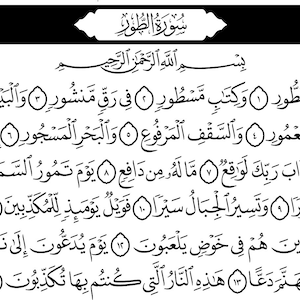 سُورَةُ الطُّورِ
بِسْمِ اللَّهِ الرَّحْمَٰنِ الرَّحِيمِ
طُّورِ ١ وَكِتَابٍ مَّسْطُورٍ ٢ فِي رَقٍّ مَّنشُورٍ ٣ وَالْبَيْ
عْمُورِ ٤ وَالسَّقْفِ الْمَرْفُوعِ ٥ وَالْبَحْرِ الْمَسْجُورِ ٦
ابَ رَبِّكَ لَوَاقِعٌ ٧ مَّا لَهُ مِن دَافِعٍ ٨ يَوْمَ تَمُورُ السَّمَ
رًا ٩ وَتَسِيرُ الْجِبَالُ سَيْرًا ١٠ فَوَيْلٌ يَوْمَئِذٍ لِّلْمُكَذِّبِينَ
ينَ هُمْ فِي خَوْضٍ يَلْعَبُونَ ١٢ يَوْمَ يُدَعُّونَ إِلَىٰ نَ
هَنَّمَ دَعًّا ١٣ هَٰذِهِ النَّارُ الَّتِي كُنتُم بِهَا تُكَذِّبُونَ